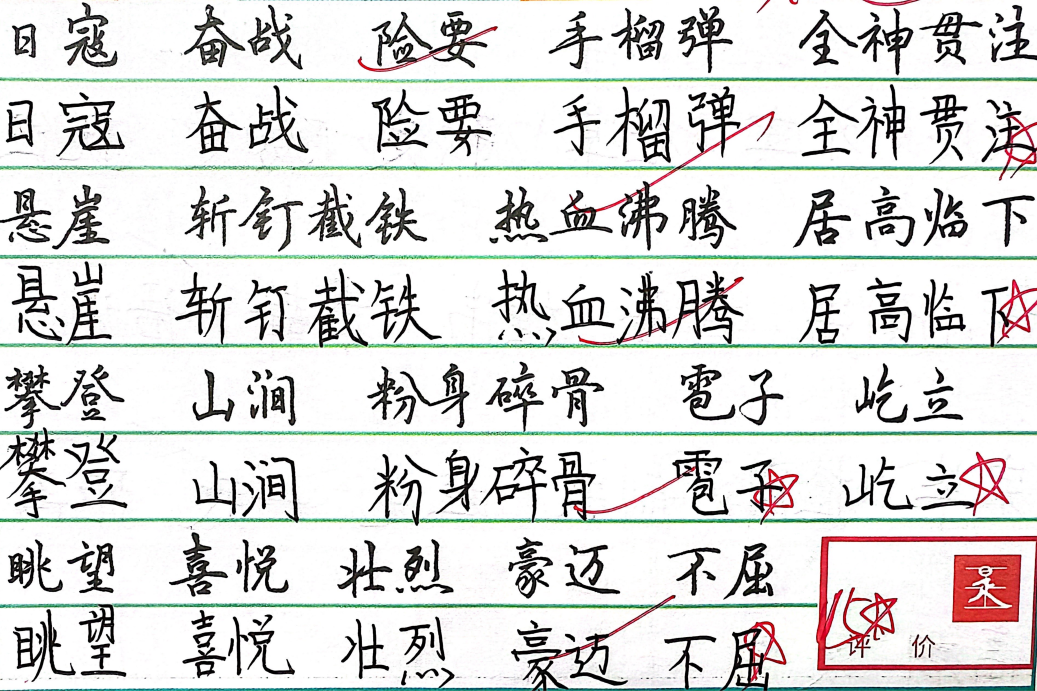 日寇 奋战 险要 手榴弹 全神贯注
日寇 奋战 险要 手榴弹 全神贯注
悬崖 斩钉截铁 热血沸腾 居高临下
悬崖 斩钉截铁 热血沸腾 居高临下
攀登 山涧 粉身碎骨 雹子 屹立
攀登 山涧 粉身碎骨 雹子 屹立
眺望 喜悦 壮烈 豪迈 不屈
眺望 喜悦 壮烈 豪迈 不屈
15
评价